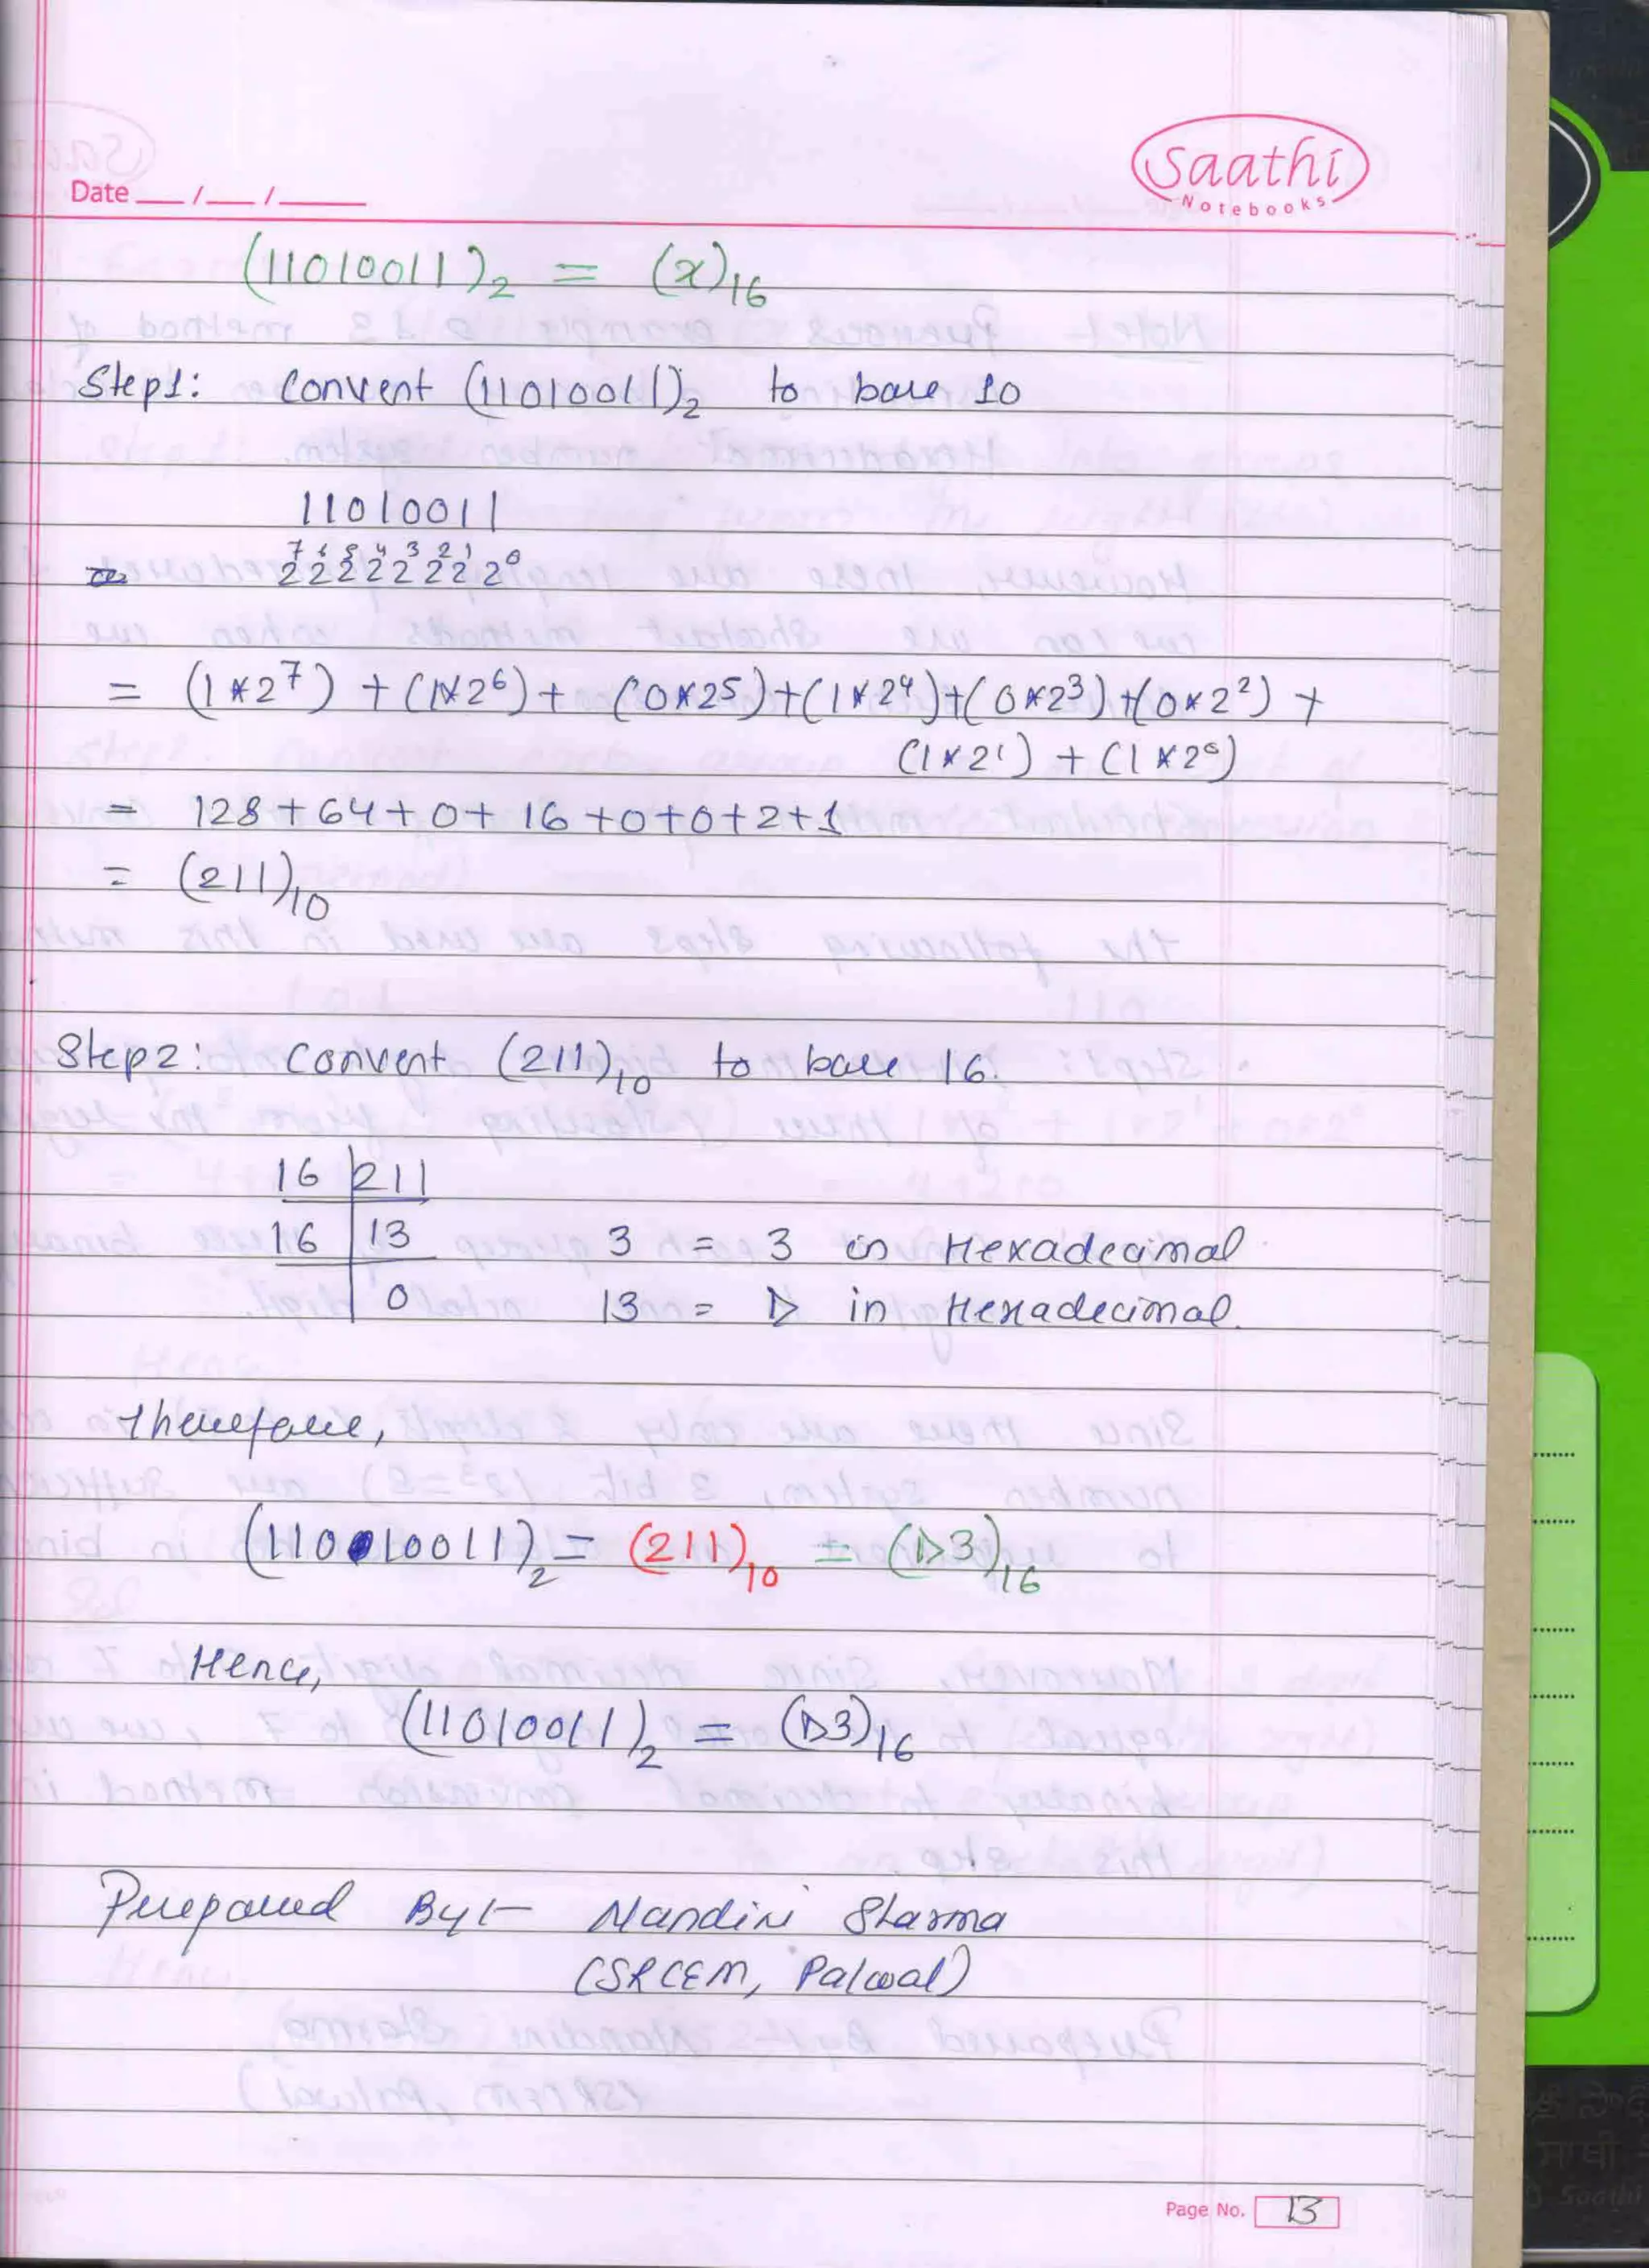 Saathi
Notebooks
Date __/__/____
(11010011)₂ = (x)₁₆
Step1: Convert (11010011)₂ to base 10
11010011
2⁷2⁶2⁵2⁴2³2²2¹2⁰
= (1*2⁷) + (1*2⁶) + (0*2⁵)+(1*2⁴)+(0*2³)+(0*2²) +
(1*2¹) + (1*2⁰)
= 128+64+0+16+0+0+2+1
= (211)₁₀
Step2: Convert (211)₁₀ to base 16.
16 211
16 13 3 = 3 in Hexadecimal
0 13 = D in Hexadecimal.
Therefore,
(11010011)₂ = (211)₁₀ = (D3)₁₆
Hence,
(11010011)₂ = (D3)₁₆
Prepared By:- Nandini Sharma
(SRCEM, Palwal)
Page No. 13